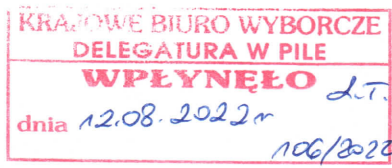 KRAJOWE BIURO WYBORCZE
DELEGATURA W PILE
WPŁYNĘŁO
J.T.
dnia 12.08.2022r
106/2022